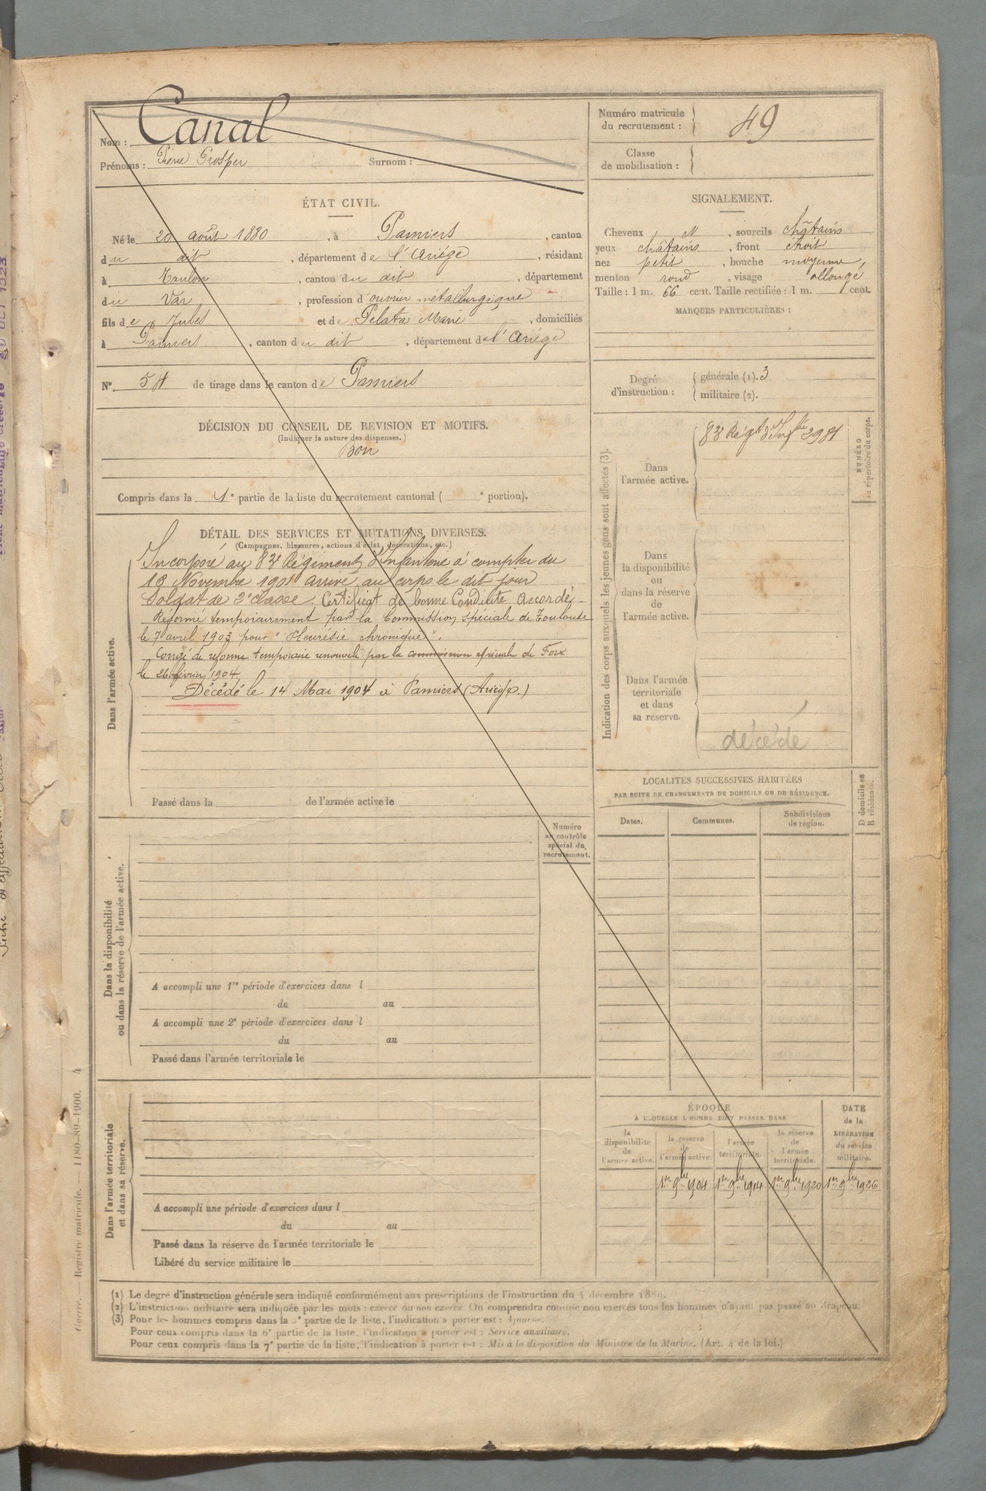 Nom : Canal
Prénoms : Pierre Prosper Surnom :
Numéro matricule
du recrutement : 49
Classe
de mobilisation :
ÉTAT CIVIL.
Né le 20 août 1880, à Pamiers, canton
du dit, département de l'Ariège, résidant
à Toulon, canton du dit, département
du Var, profession d'ouvrier métallurgique
fils de Jules et de Pelata Marie, domiciliés
à Pamiers, canton du dit, département de l'Ariège
N° 54 de tirage dans le canton de Pamiers
SIGNALEMENT.
Cheveux, sourcils châtains
yeux châtains, front étroit
nez petit, bouche moyenne,
menton rond, visage allongé
Taille : 1 m. 66 cent. Taille rectifiée : 1 m. cent.
MARQUES PARTICULIÈRES :
Degré
d'instruction :
générale (1). 3
militaire (2).
DÉCISION DU CONSEIL DE REVISION ET MOTIFS.
(Indiquer la nature des dispenses.)
Bon
Compris dans la 1e partie de la liste du recrutement cantonal ( e portion).
DÉTAIL DES SERVICES ET MUTATIONS DIVERSES.
(Campagnes, blessures, actions d'éclat, décorations, etc.)
Dans l'armée active.
Incorporé au 83e Régiment d'Infanterie à compter du
19 Novembre 1901 arrivé au corps le dit jour
Soldat de 2e classe. Certificat de bonne Conduite Accordé.
Réformé temporairement par la Commission spéciale de Toulouse
le 7 avril 1903 pour "Pleurésie chronique".
Congé de réforme temporaire renouvelé par la commission spéciale de Foix
le 26 février 1904
Décédé le 14 Mai 1904 à Pamiers (Ariège.)
Passé dans la de l'armée active le
Indication des corps auxquels les jeunes gens sont affectés (3).
Dans
l'armée active.
83e Régt d'Infrie 3981
NUMÉRO
au répertoire du corps.
Dans
la disponibilité
ou
dans la réserve
de
l'armée active.
Dans l'armée
territoriale
et dans
sa réserve.
décédé
LOCALITÉS SUCCESSIVES HABITÉES
PAR SUITE DE CHANGEMENTS DE DOMICILE OU DE RÉSIDENCE.
Dates.
Communes.
Subdivisions
de région.
D domicile ou
R résidence.
Numéro
au contrôle
spécial du
recrutement.
Dans la disponibilité
ou dans la réserve de l'armée active.
A accompli une 1re période d'exercices dans l
du au
A accompli une 2e période d'exercices dans l
du au
Passé dans l'armée territoriale le
Dans l'armée territoriale
et dans sa réserve.
A accompli une période d'exercices dans l
du au
Passé dans la réserve de l'armée territoriale le
Libéré du service militaire le
ÉPOQUE
À LAQUELLE L'HOMME DOIT PASSER DANS
la
disponibilité
de
l'armée active.
la réserve
de
l'armée active.
l'armée
territoriale.
la réserve
de
l'armée
territoriale.
DATE
de la
LIBÉRATION
du service
militaire.
1er 9bre 1904 1er 9bre 1914 1er 9bre 1920 1er 9bre 1926
(1) Le degré d'instruction générale sera indiqué conformément aux prescriptions de l'instruction du 4 décembre 1889.
(2) L'instruction militaire sera indiquée par les mots : exercé ou non exercé. On comprendra comme non exercés tous les hommes n'ayant pas passé au drapeau.
(3) Pour les hommes compris dans la 5e partie de la liste, l'indication à porter est : Ajourné.
Pour ceux compris dans la 6e partie de la liste, l'indication à porter est : Service auxiliaire.
Pour ceux compris dans la 7e partie de la liste, l'indication à porter est : Mis à la disposition du Ministre de la Marine. (Art. 4 de la loi.)
Guerre. — Registre matricule. — 1180-89-1900. 4